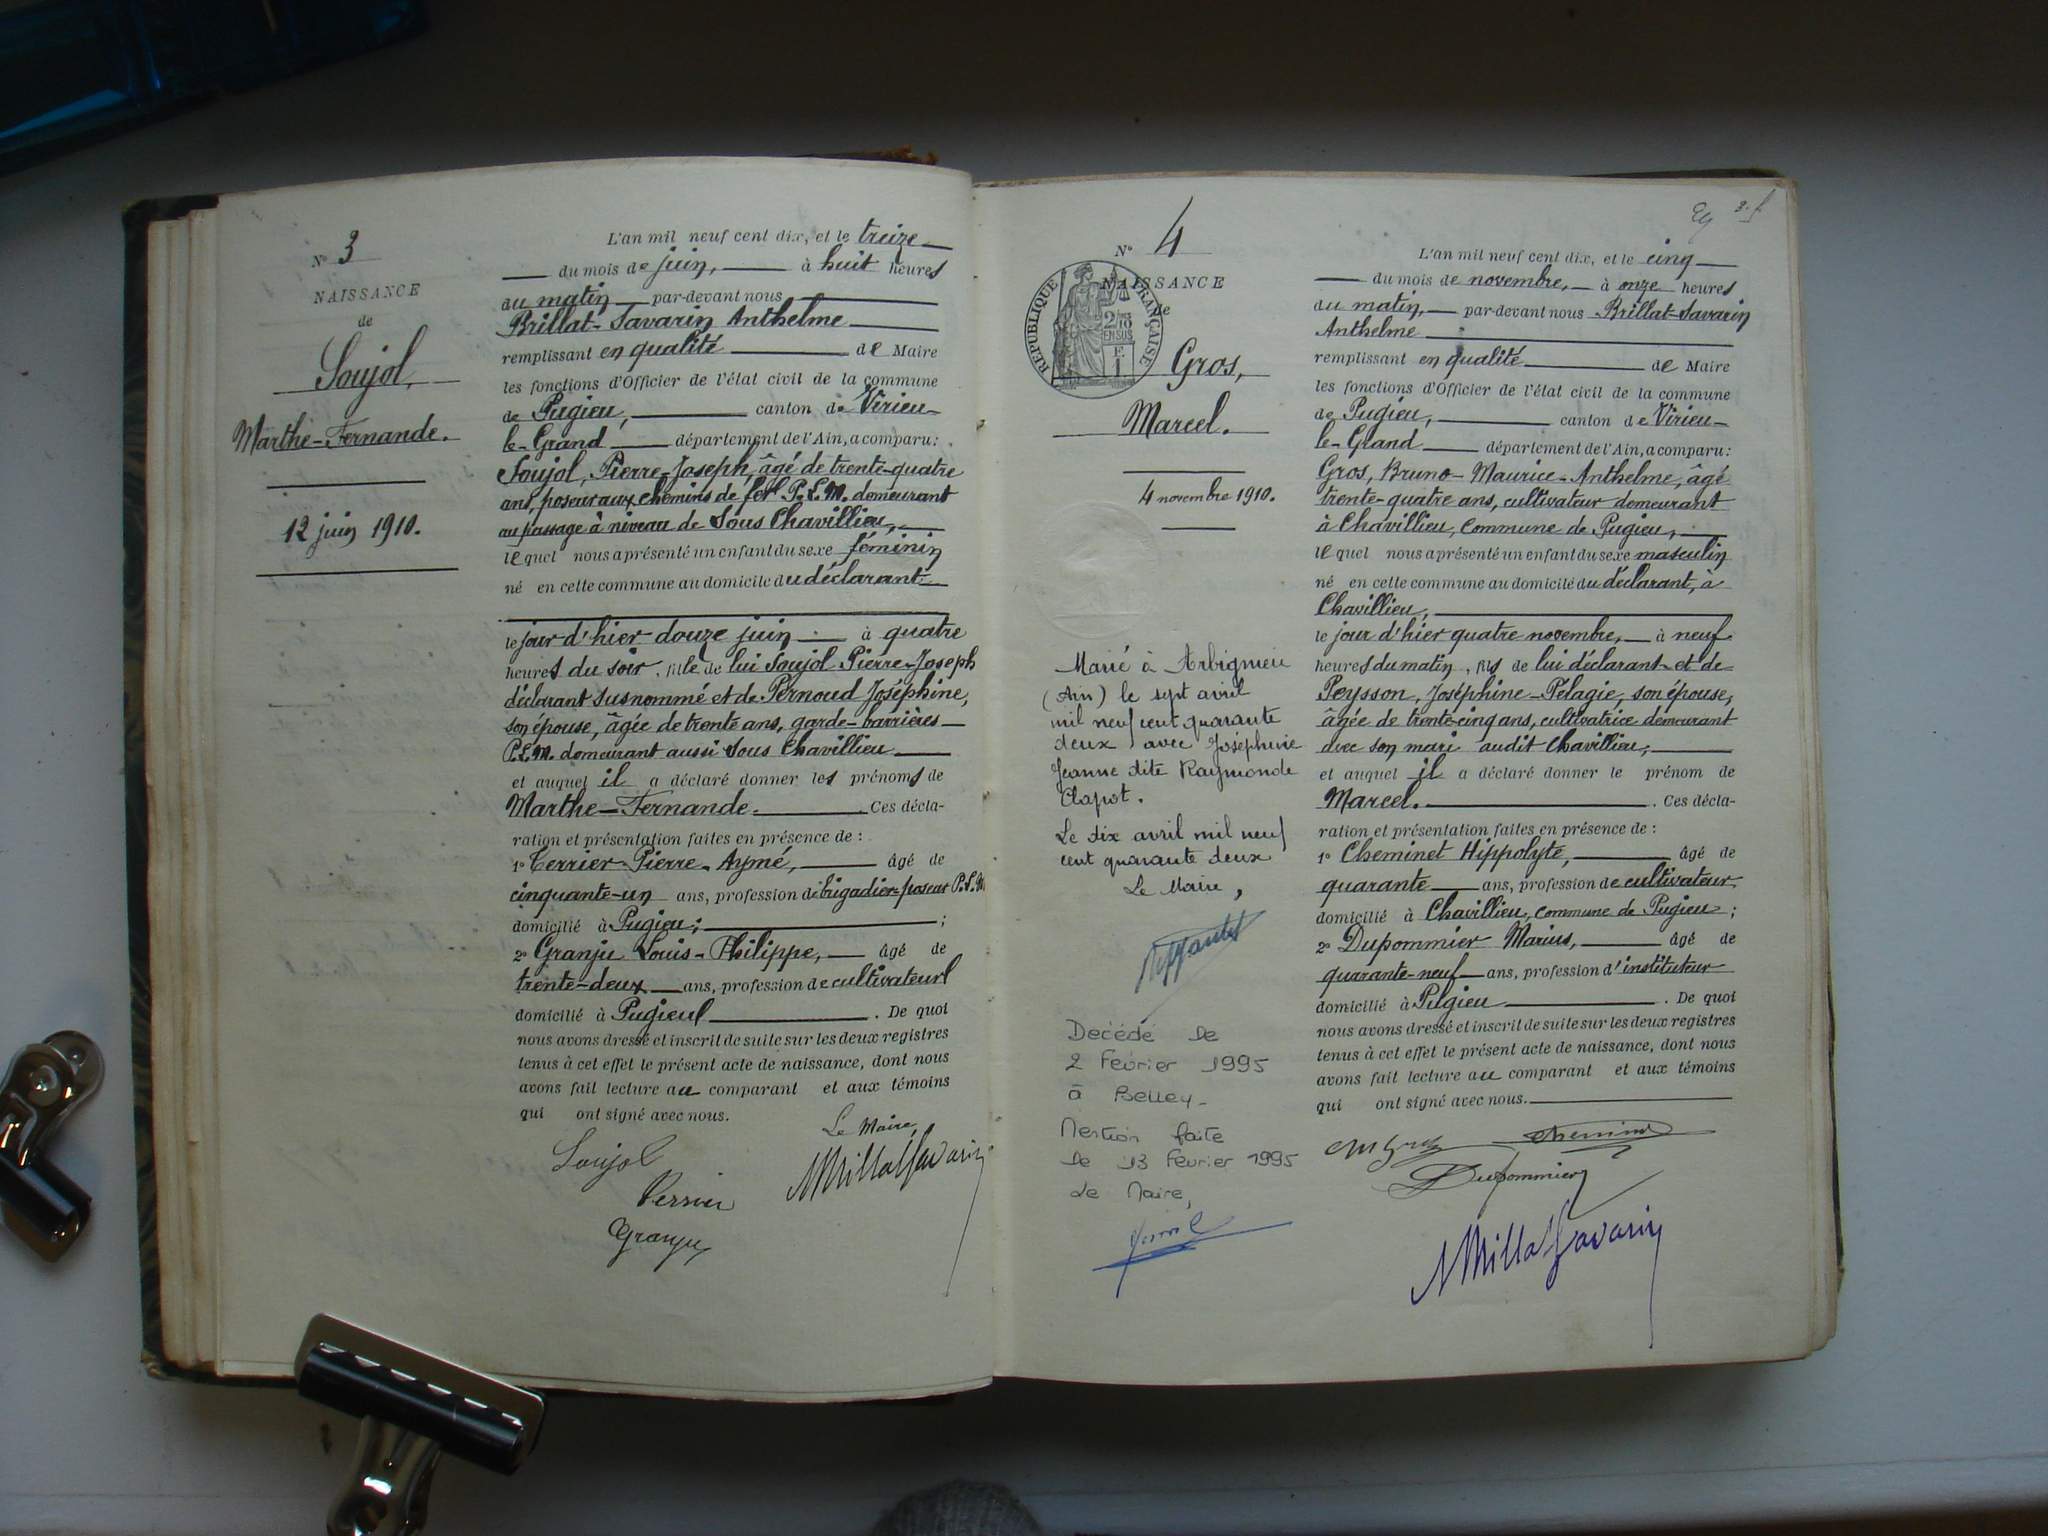 N° 3
NAISSANCE
de
Soujol,
Marthe-Fernande.
12 juin 1910.
L'an mil neuf cent dix, et le treize
du mois de juin, à huit heures
du matin par-devant nous
Brillat-Savarin Anthelme
remplissant en qualité de Maire
les fonctions d'Officier de l'état civil de la commune
de Pugieu, canton de Virieu-
le-Grand département de l'Ain, a comparu:
Soujol, Pierre-Joseph, âgé de trente-quatre
ans, poseur aux chemins de fer P.L.M. demeurant
au passage à niveau de Sous Chavillieu,
lequel nous a présenté un enfant du sexe féminin
né en cette commune au domicile du déclarant
le jour d'hier douze juin à quatre
heures du soir, fille de lui Soujol Pierre-Joseph
déclarant susnommé et de Pernoud Joséphine,
son épouse, âgée de trente ans, garde-barrières
P.L.M. demeurant aussi Sous Chavillieu
et auquel il a déclaré donner les prénoms de
Marthe-Fernande. Ces décla-
ration et présentation faites en présence de :
1° Terrier Pierre-Aymé, âgé de
cinquante-un ans, profession de brigadier-poseur P.L.M
domicilié à Pugieu; ;
2° Granju Louis-Philippe, âgé de
trente-deux ans, profession de cultivateur
domicilié à Pugieu . De quoi
nous avons dressé et inscrit de suite sur les deux registres
tenus à cet effet le présent acte de naissance, dont nous
avons fait lecture au comparant et aux témoins
qui ont signé avec nous.
Le Maire,
Soujol
Granju
N° 4
NAISSANCE
de
RÉPUBLIQUE FRANÇAISE
Gros,
Marcel.
4 novembre 1910.
Marié à Arbignieu
(Ain) le sept avril
mil neuf cent quarante
deux avec Joséphine
Jeanne dite Raymonde
Clapot.
Le dix avril mil neuf
cent quarante deux
Le Maire,
Décédé le
2 Février 1995
à Belley_
Mention faite
le 13 Février 1995
Le Maire,
L'an mil neuf cent dix, et le cinq
du mois de novembre, à onze heures
du matin, par-devant nous Brillat-Savarin
Anthelme
remplissant en qualité de Maire
les fonctions d'Officier de l'état civil de la commune
de Pugieu, canton de Virieu-
le-Grand département de l'Ain, a comparu:
Gros, Bruno-Maurice-Anthelme, âgé
trente-quatre ans, cultivateur demeurant
à Chavillieu, commune de Pugieu,
lequel nous a présenté un enfant du sexe masculin
né en cette commune au domicile du déclarant, à
Chavillieu,
le jour d'hier quatre novembre, à neuf
heures du matin, fils de lui déclarant et de
Peysson, Joséphine-Pélagie, son épouse,
âgée de trente-cinq ans, cultivatrice demeurant
avec son mari audit Chavillieu;
et auquel il a déclaré donner le prénom de
Marcel. . Ces décla-
ration et présentation faites en présence de :
1° Cheminet Hippolyte, âgé de
quarante ans, profession de cultivateur
domicilié à Chavillieu, commune de Pugieu ;
2° Dupommier Marius, âgé de
quarante-neuf ans, profession d'instituteur
domicilié à Pugieu . De quoi
nous avons dressé et inscrit de suite sur les deux registres
tenus à cet effet le présent acte de naissance, dont nous
avons fait lecture au comparant et aux témoins
qui ont signé avec nous.
Dupommier